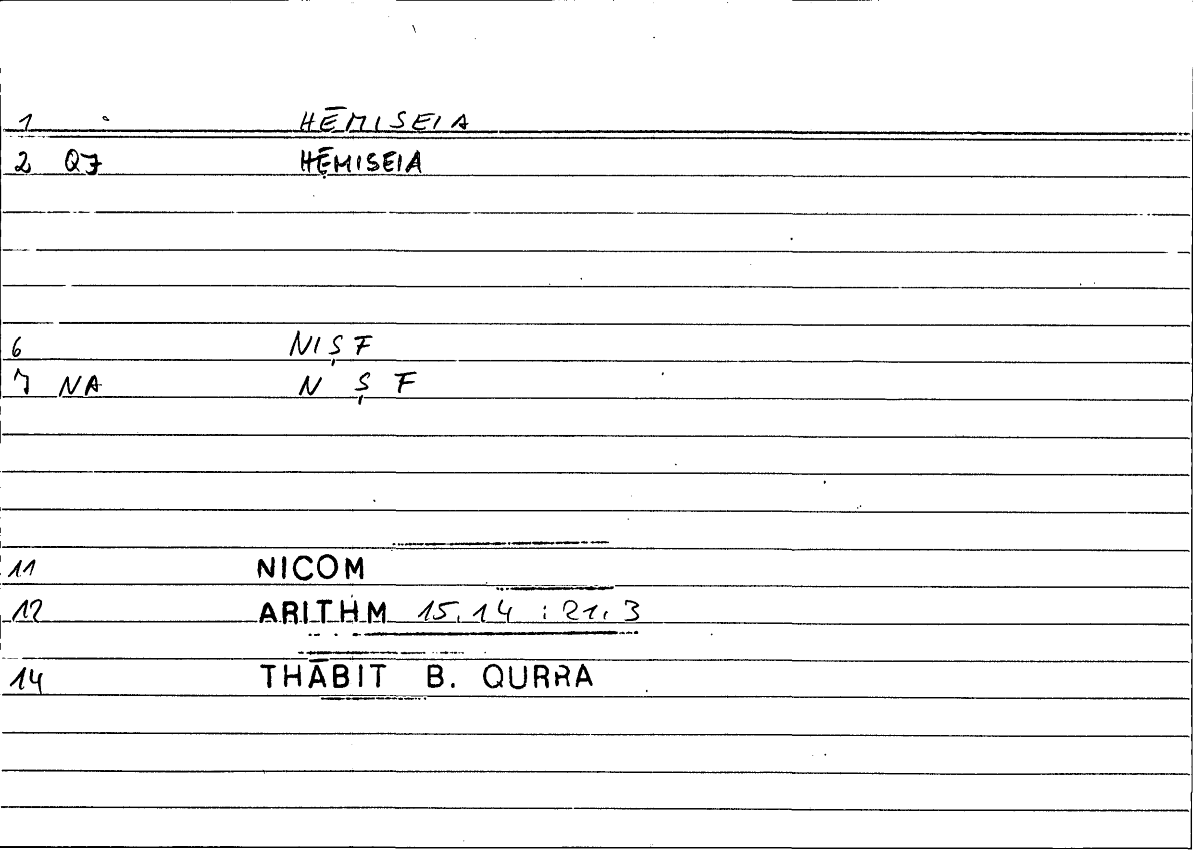 1 HĒMISEIA
2 QJ HĒMISEIA
6 NIṢF
7 NA N Ṣ F
11 NICOM
12 ARITHM 15.14 : 21.3
14 THĀBIT B. QURRA